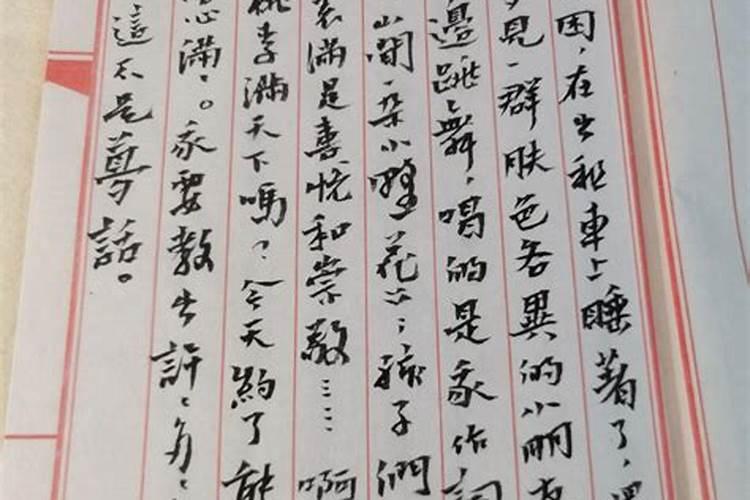 困,在出租車上睡著了,
見一群膚色各異的小朋友
邊跳舞,唱的是我作詞
山間一朵小野花》;孩子們
滿是喜悅和崇敬……啊
桃李滿天下嗎?今天約了
滿滿。我要教出許許多多
這不是夢話。